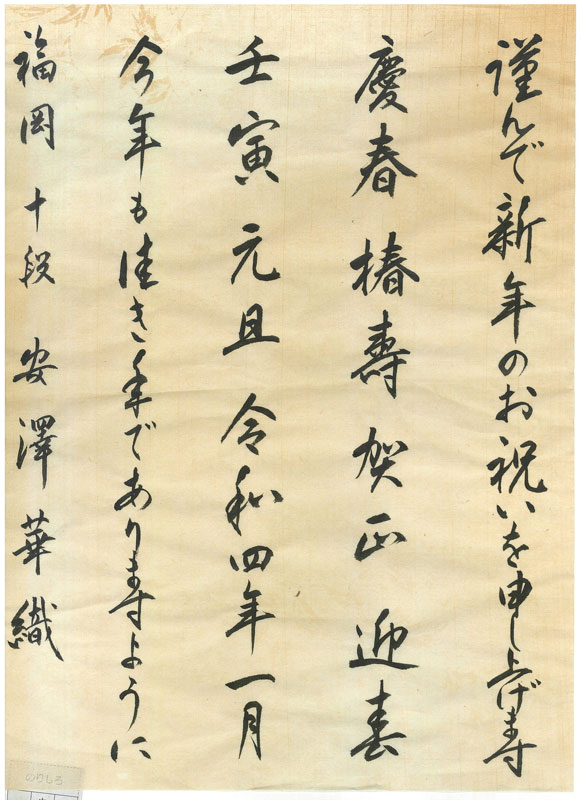 謹んで新年のお祝いを申し上げ寿
慶春 椿壽 賀正 迎春
壬寅 元旦 令和四年一月
今年も佳き年であり寿ように
福岡 十段 安澤華織
のりしろ